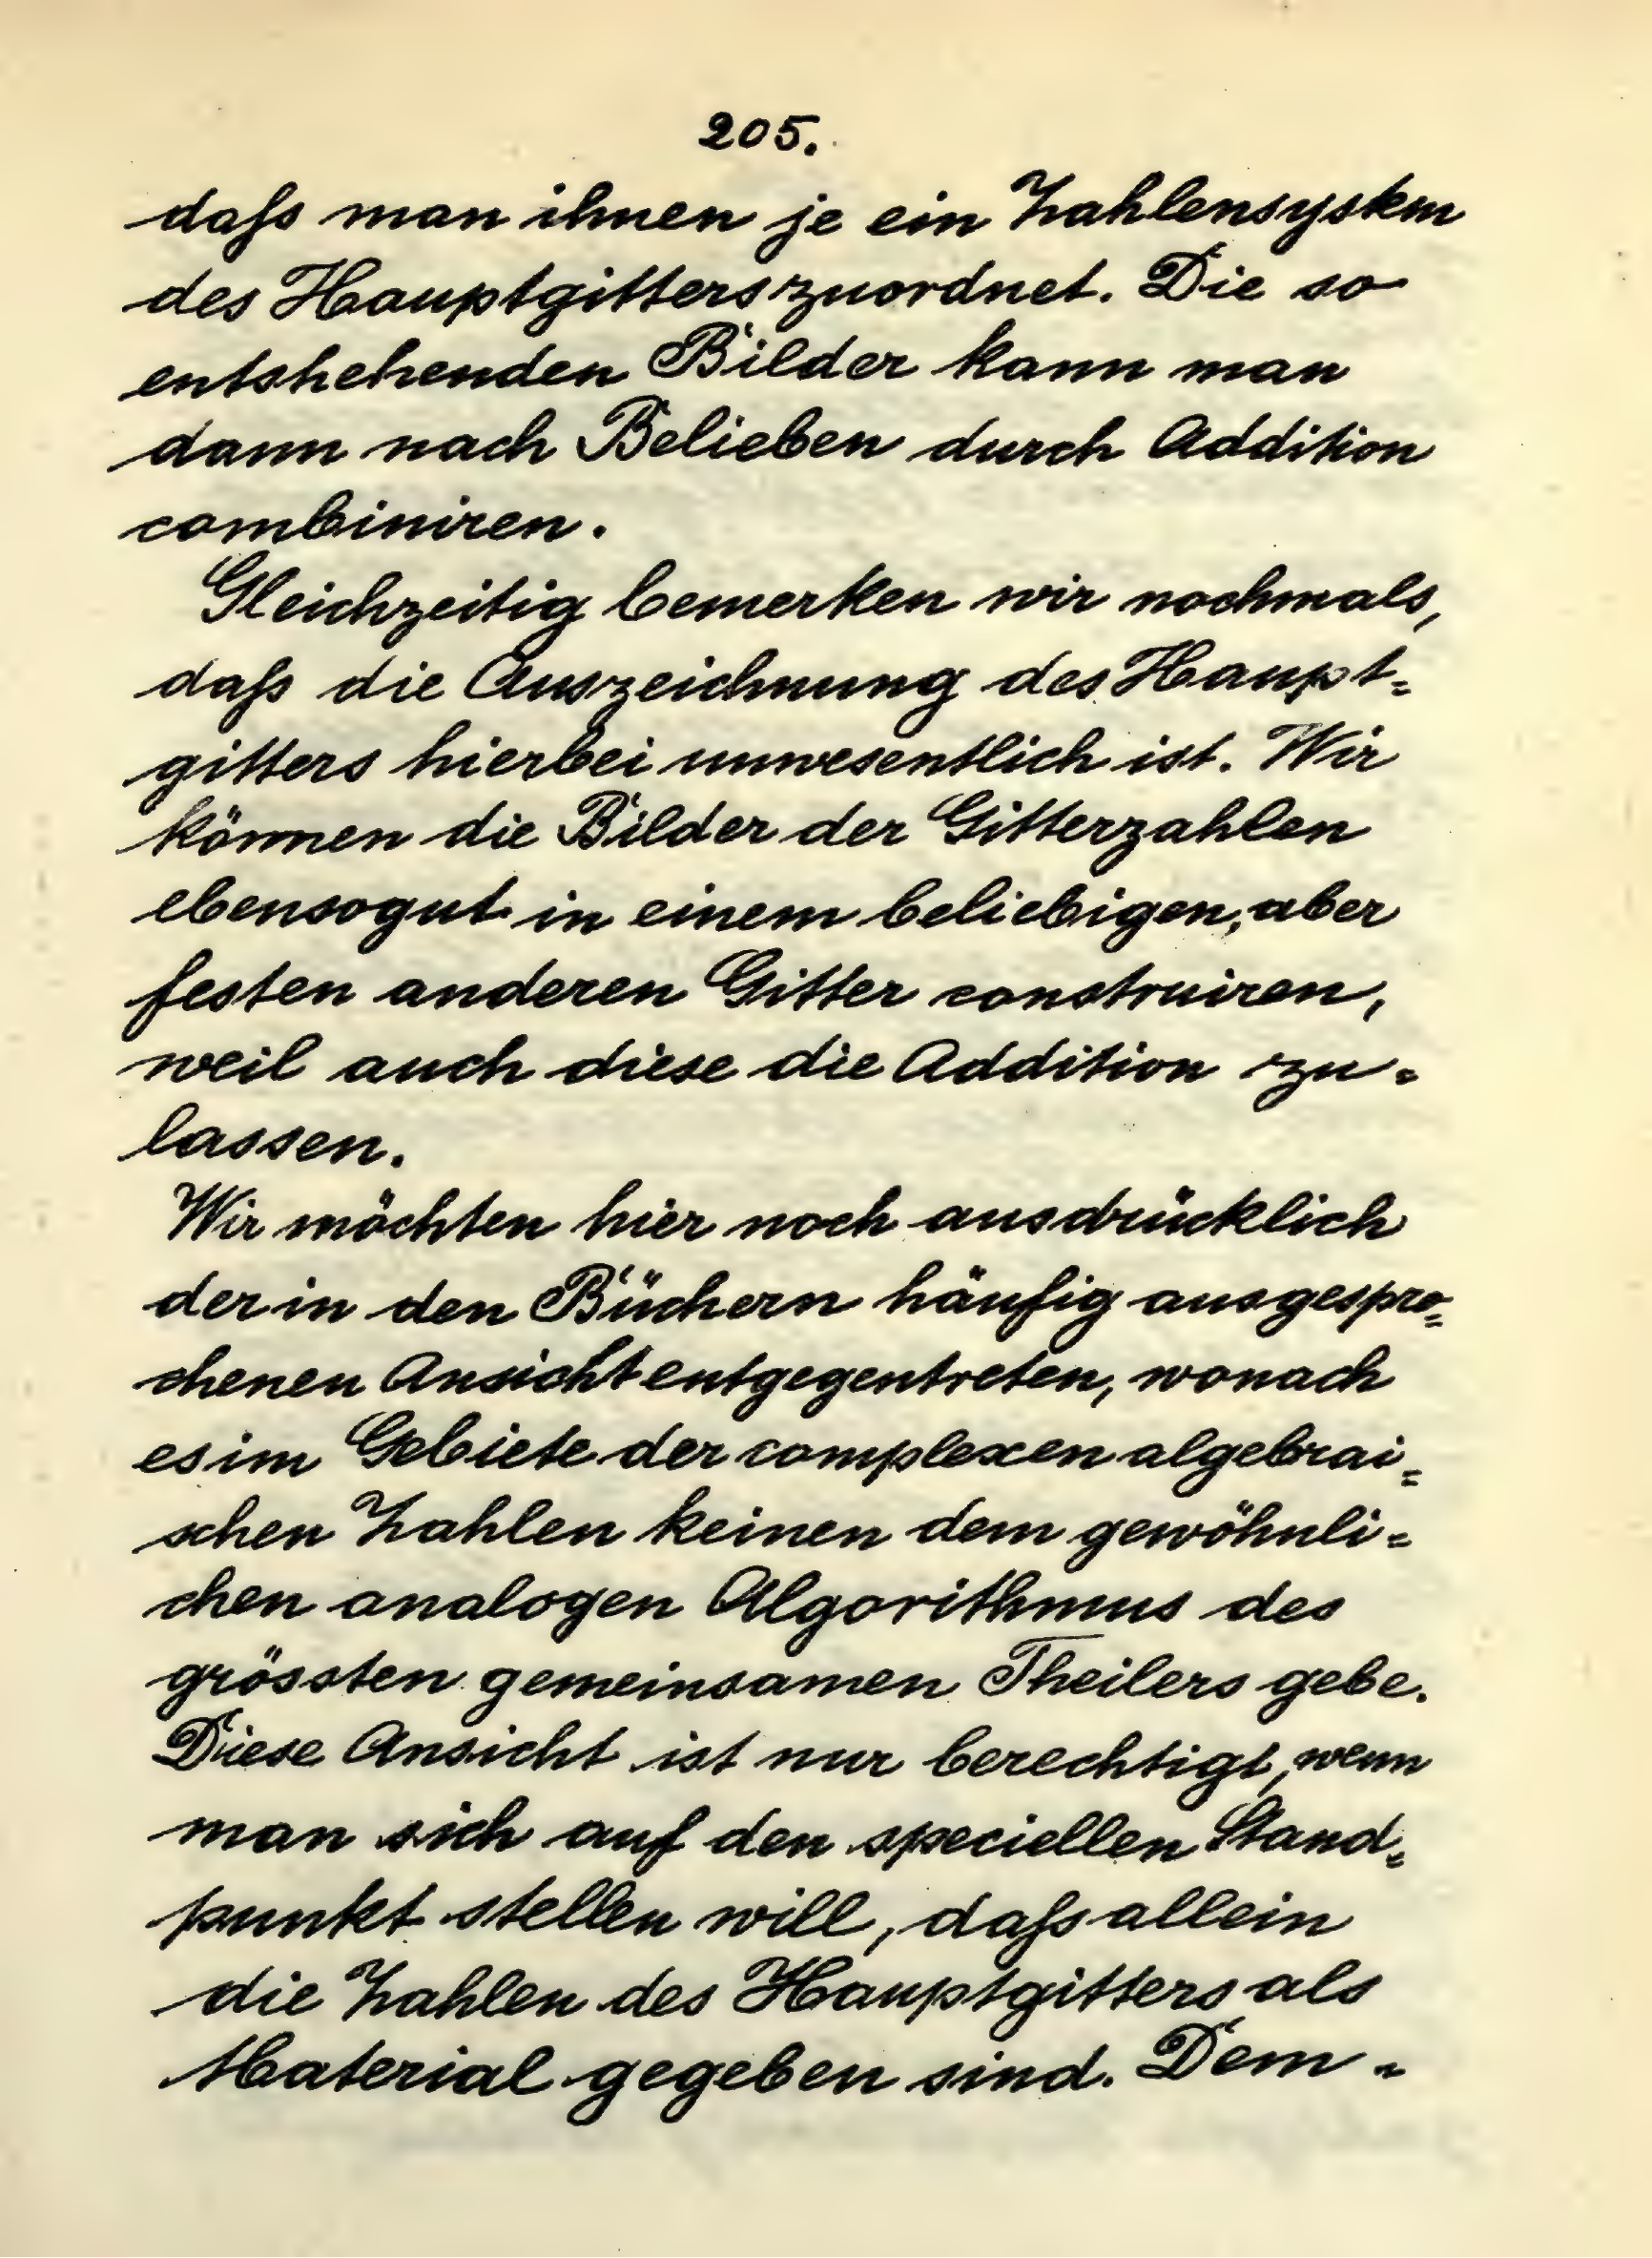 205.
daſs man ihnen je ein Zahlensystem
des Hauptgitters zuordnet. Die so
entstehenden Bilder kann man
dann nach Belieben durch Addition
combiniren.
Gleichzeitig bemerken wir nochmals,
daſs die Auszeichnung des Haupt=
gitters hierbei unwesentlich ist. Wir
können die Bilder der Gitterzahlen
ebensogut in einem beliebigen, aber
festen anderen Gitter construiren,
weil auch diese die Addition zu=
lassen.
Wir möchten hier noch ausdrücklich
der in den Büchern häufig ausgespro=
chenen Ansicht entgegentreten, wonach
es im Gebiete der complexen algebrai=
schen Zahlen keinen dem gewöhnli=
chen analogen Algorithmus des
grössten gemeinsamen Theilers gebe.
Diese Ansicht ist nur berechtigt, wenn
man sich auf den speciellen Stand=
punkt stellen will, daſs allein
die Zahlen des Hauptgitters als
Material gegeben sind. Dem=